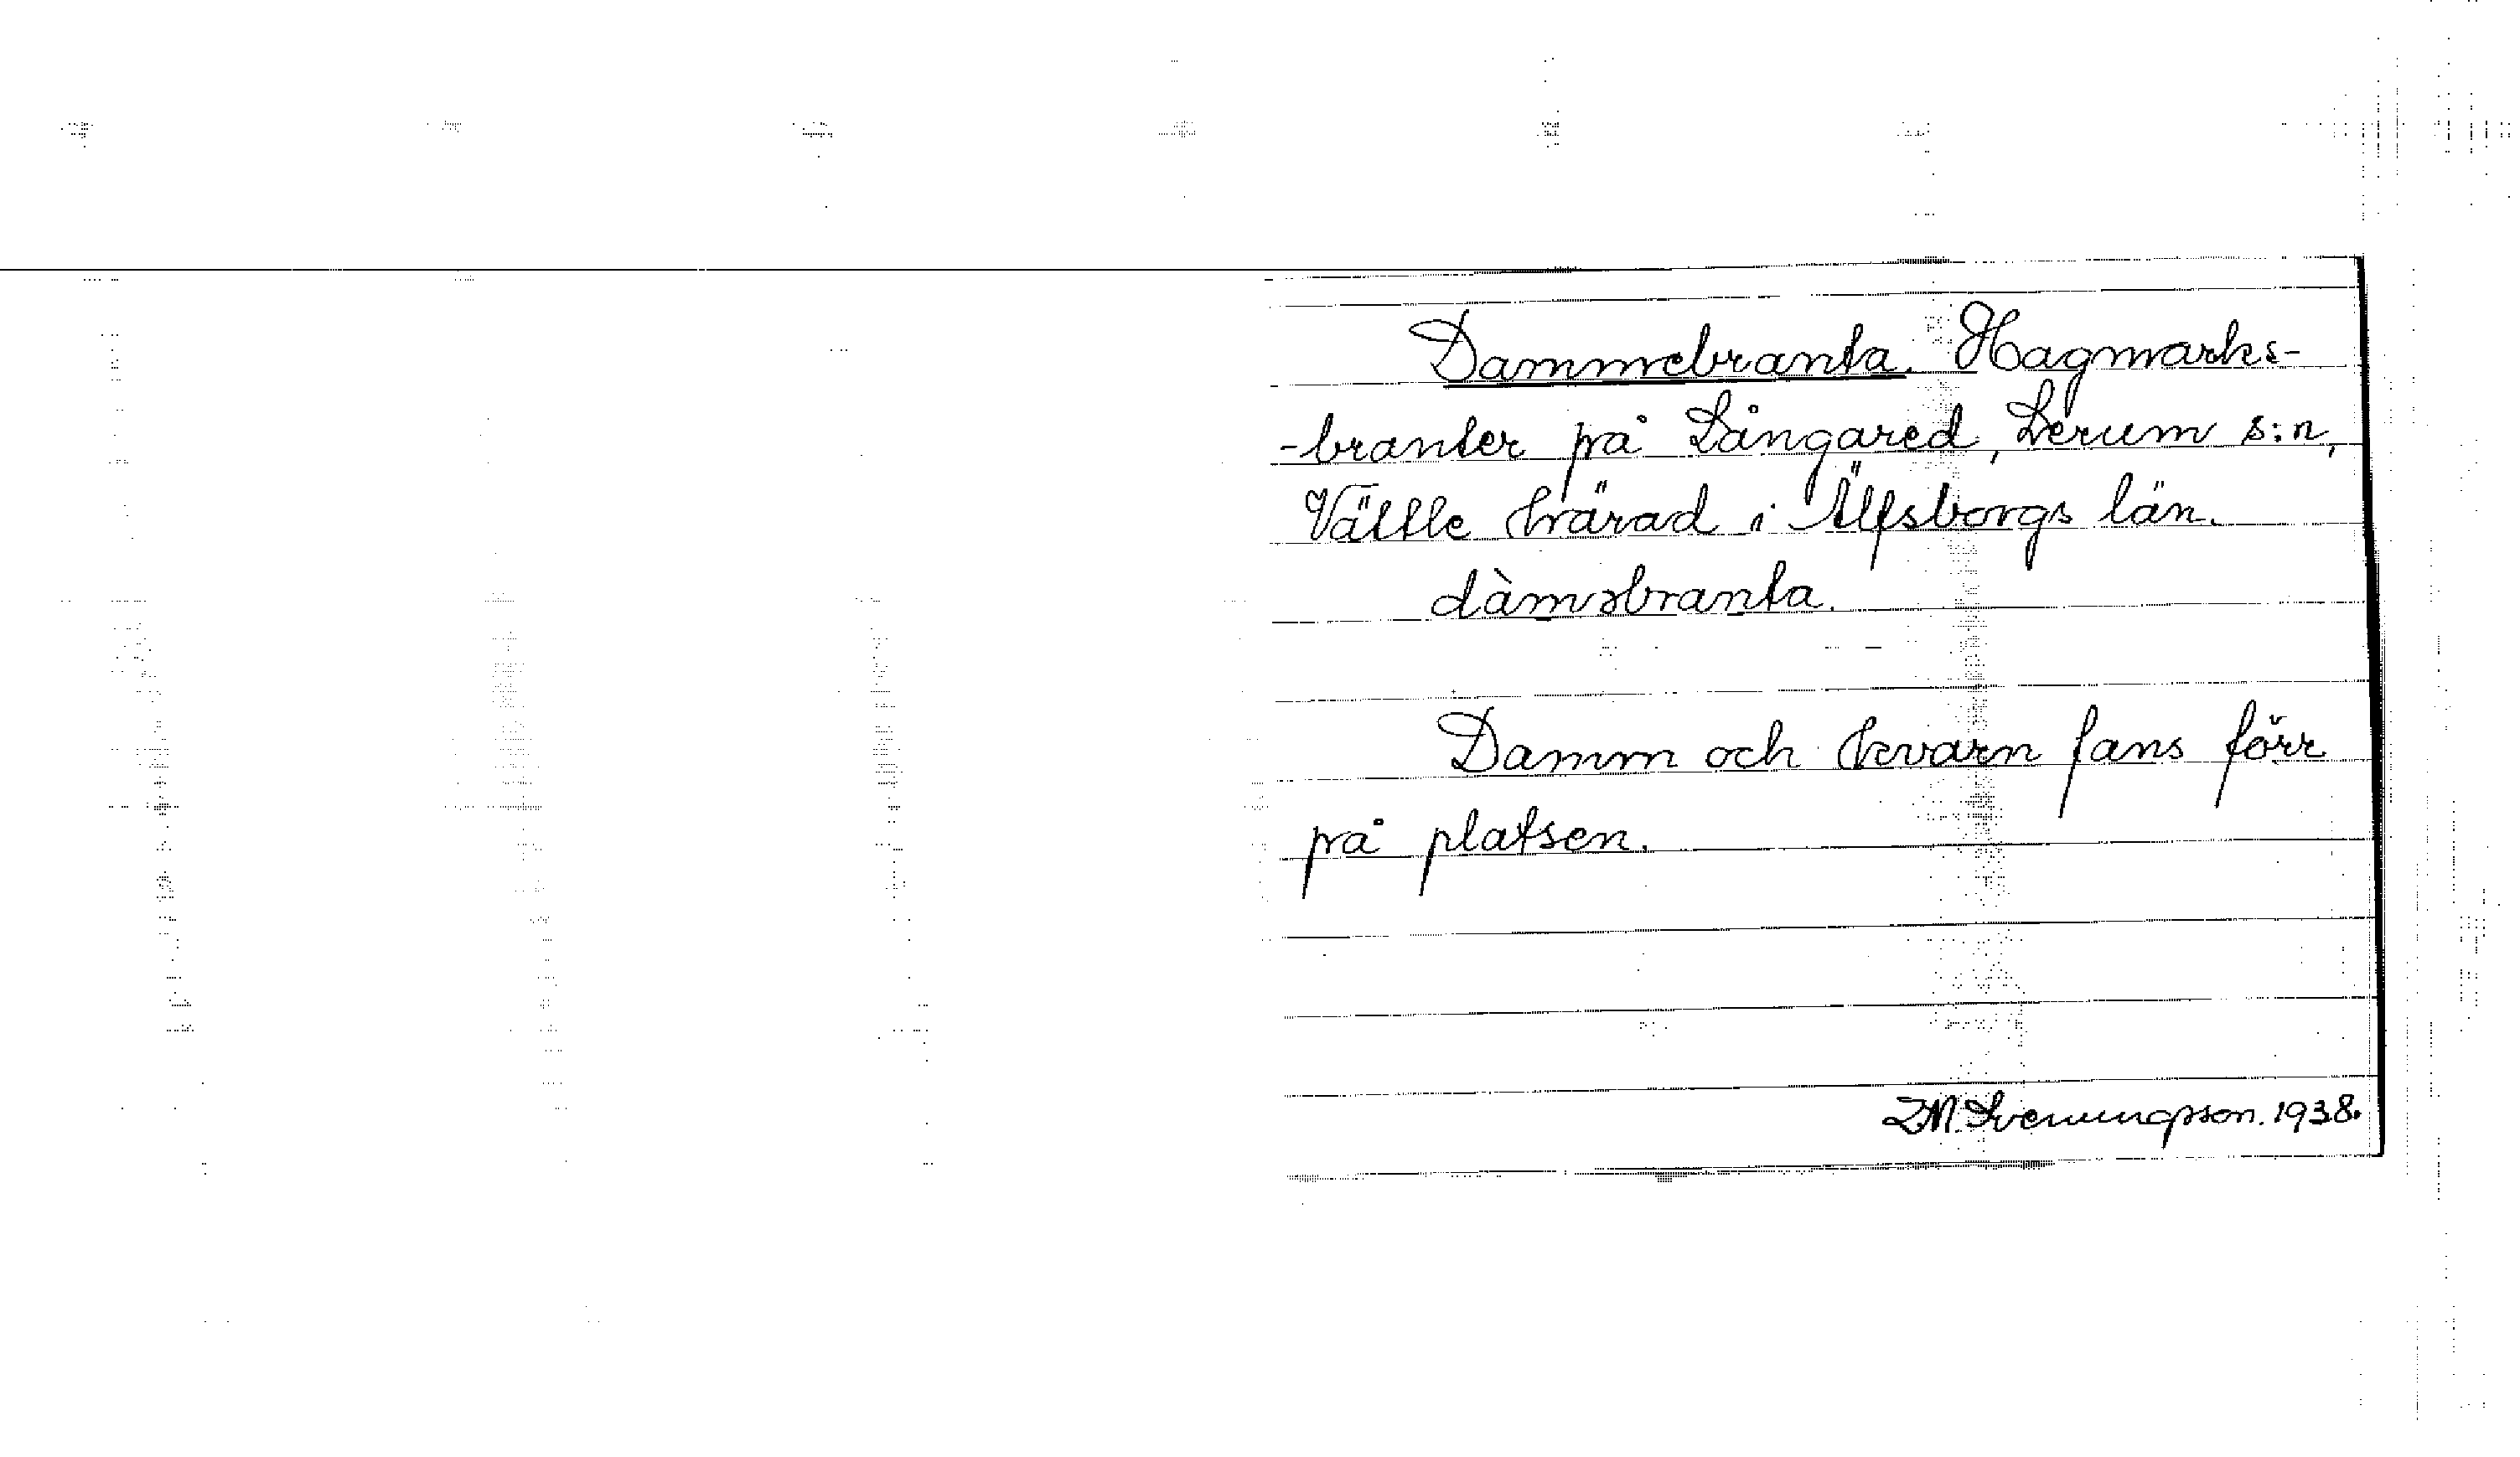 Dammebranta. Hagmarks-
-branter på Långared, Lerum s:n,
Vättle härad i Älfsborgs län.
dàməbranta.
Damm och kvarn fans förr
på platsen.
Svenungsson. 1938.